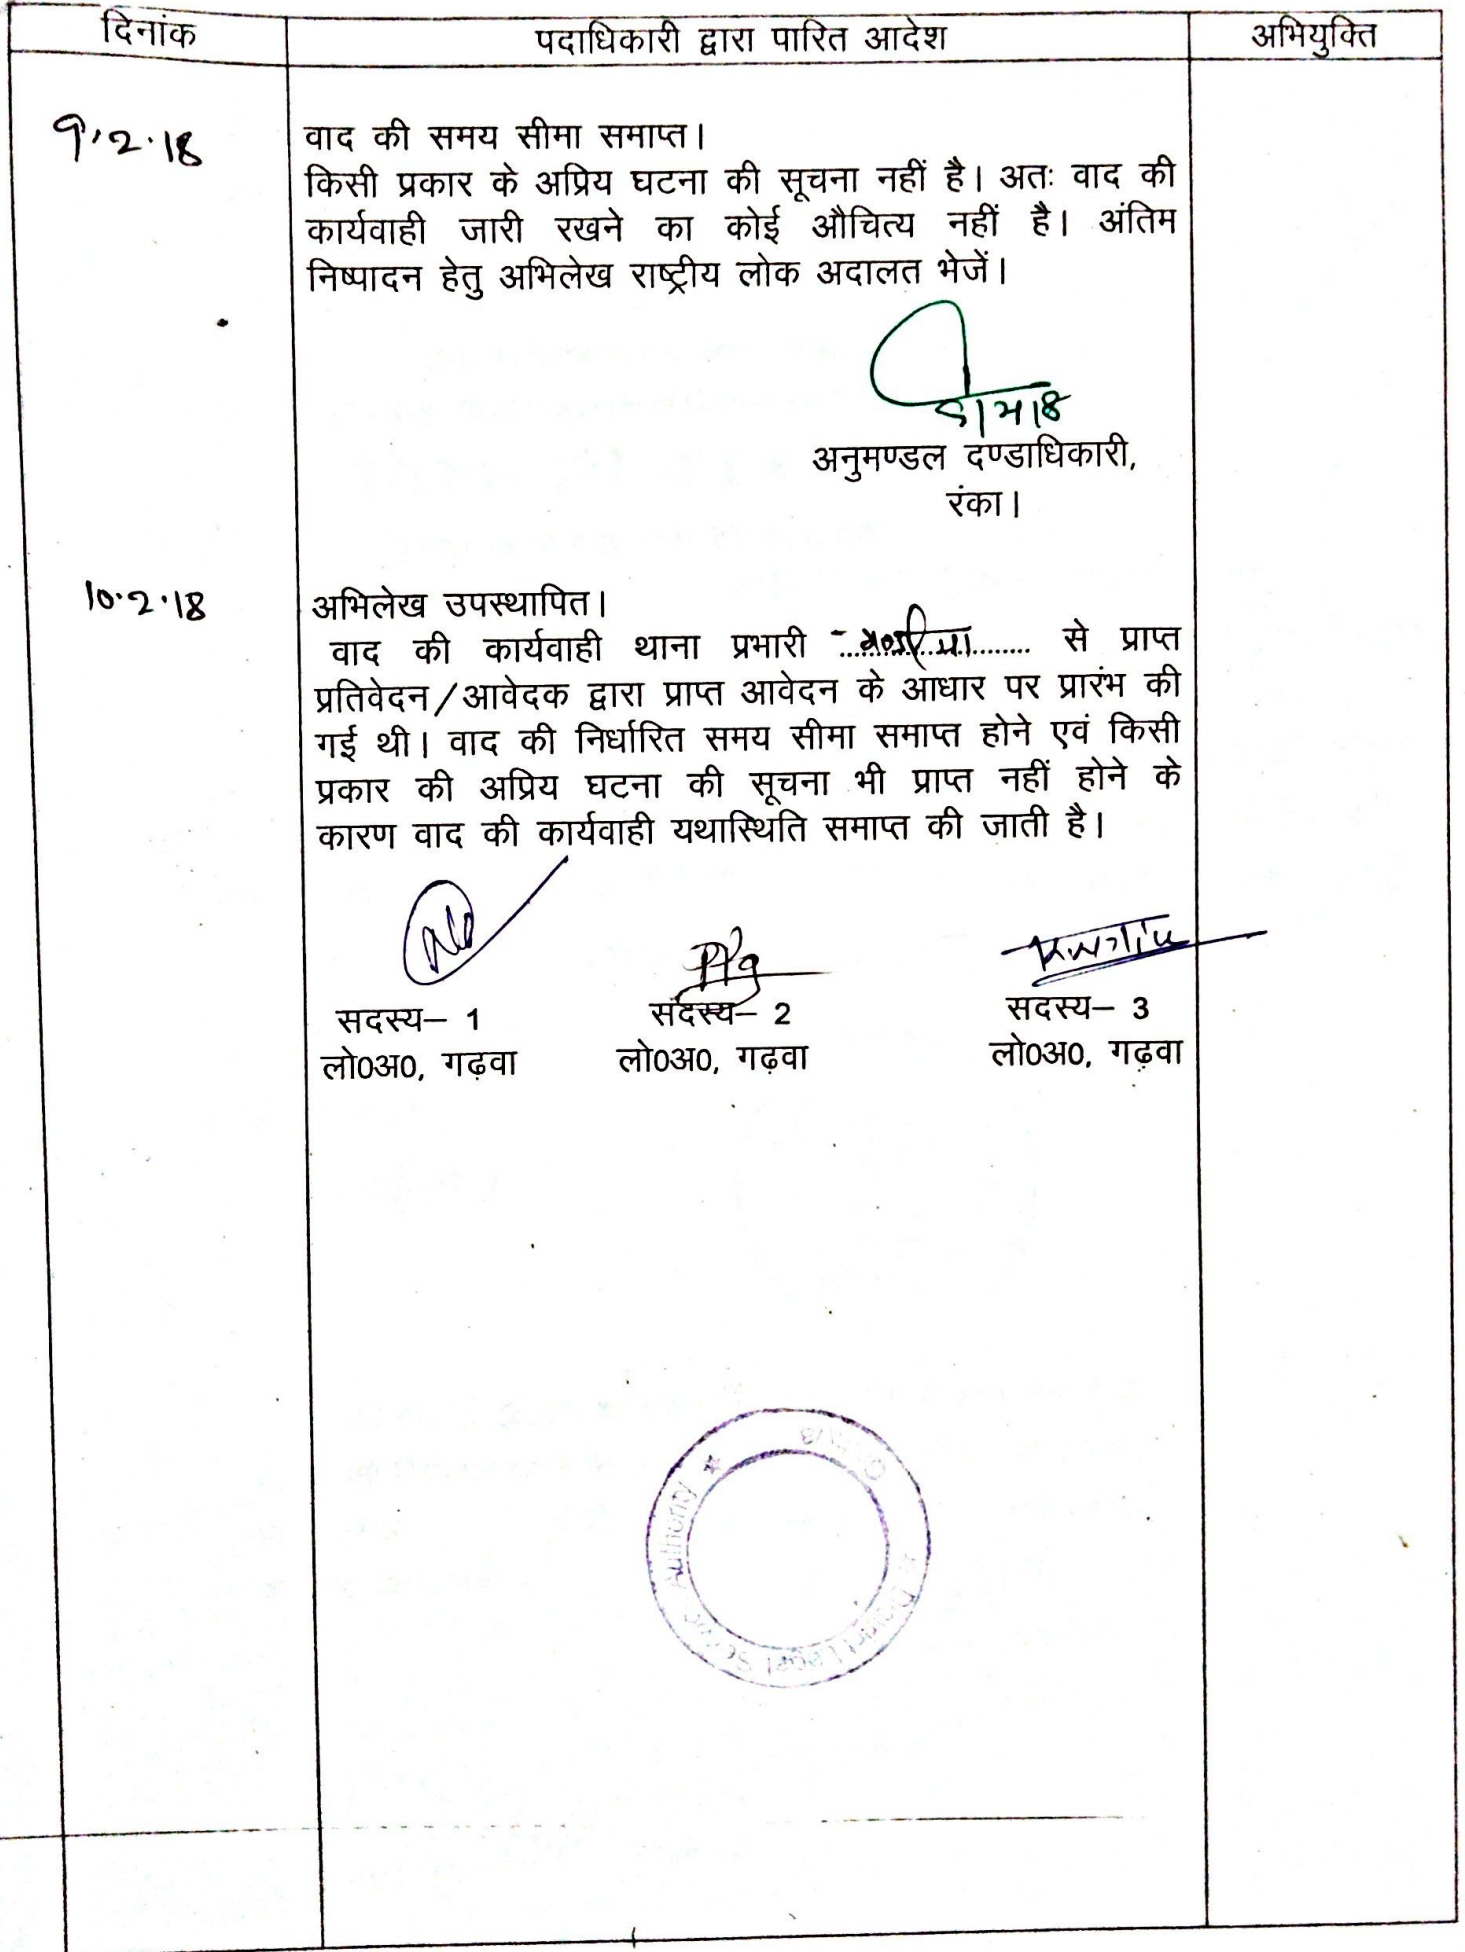 दिनांक पदाधिकारी द्वारा पारित आदेश अभियुक्ति
9.2.18 वाद की समय सीमा समाप्त।
किसी प्रकार के अप्रिय घटना की सूचना नहीं है। अतः वाद की
कार्यवाही जारी रखने का कोई औचित्य नहीं है। अंतिम
निष्पादन हेतु अभिलेख राष्ट्रीय लोक अदालत भेजें।
अनुमण्डल दण्डाधिकारी,
रंका।
10.2.18 अभिलेख उपस्थापित।
वाद की कार्यवाही थाना प्रभारी से प्राप्त
प्रतिवेदन/आवेदक द्वारा प्राप्त आवेदन के आधार पर प्रारंभ की
गई थी। वाद की निर्धारित समय सीमा समाप्त होने एवं किसी
प्रकार की अप्रिय घटना की सूचना भी प्राप्त नहीं होने के
कारण वाद की कार्यवाही यथास्थिति समाप्त की जाती है।
सदस्य– 1 सदस्य– 2 सदस्य– 3
लो0अ0, गढ़वा लो0अ0, गढ़वा लो0अ0, गढ़वा
District Legal Service Authority